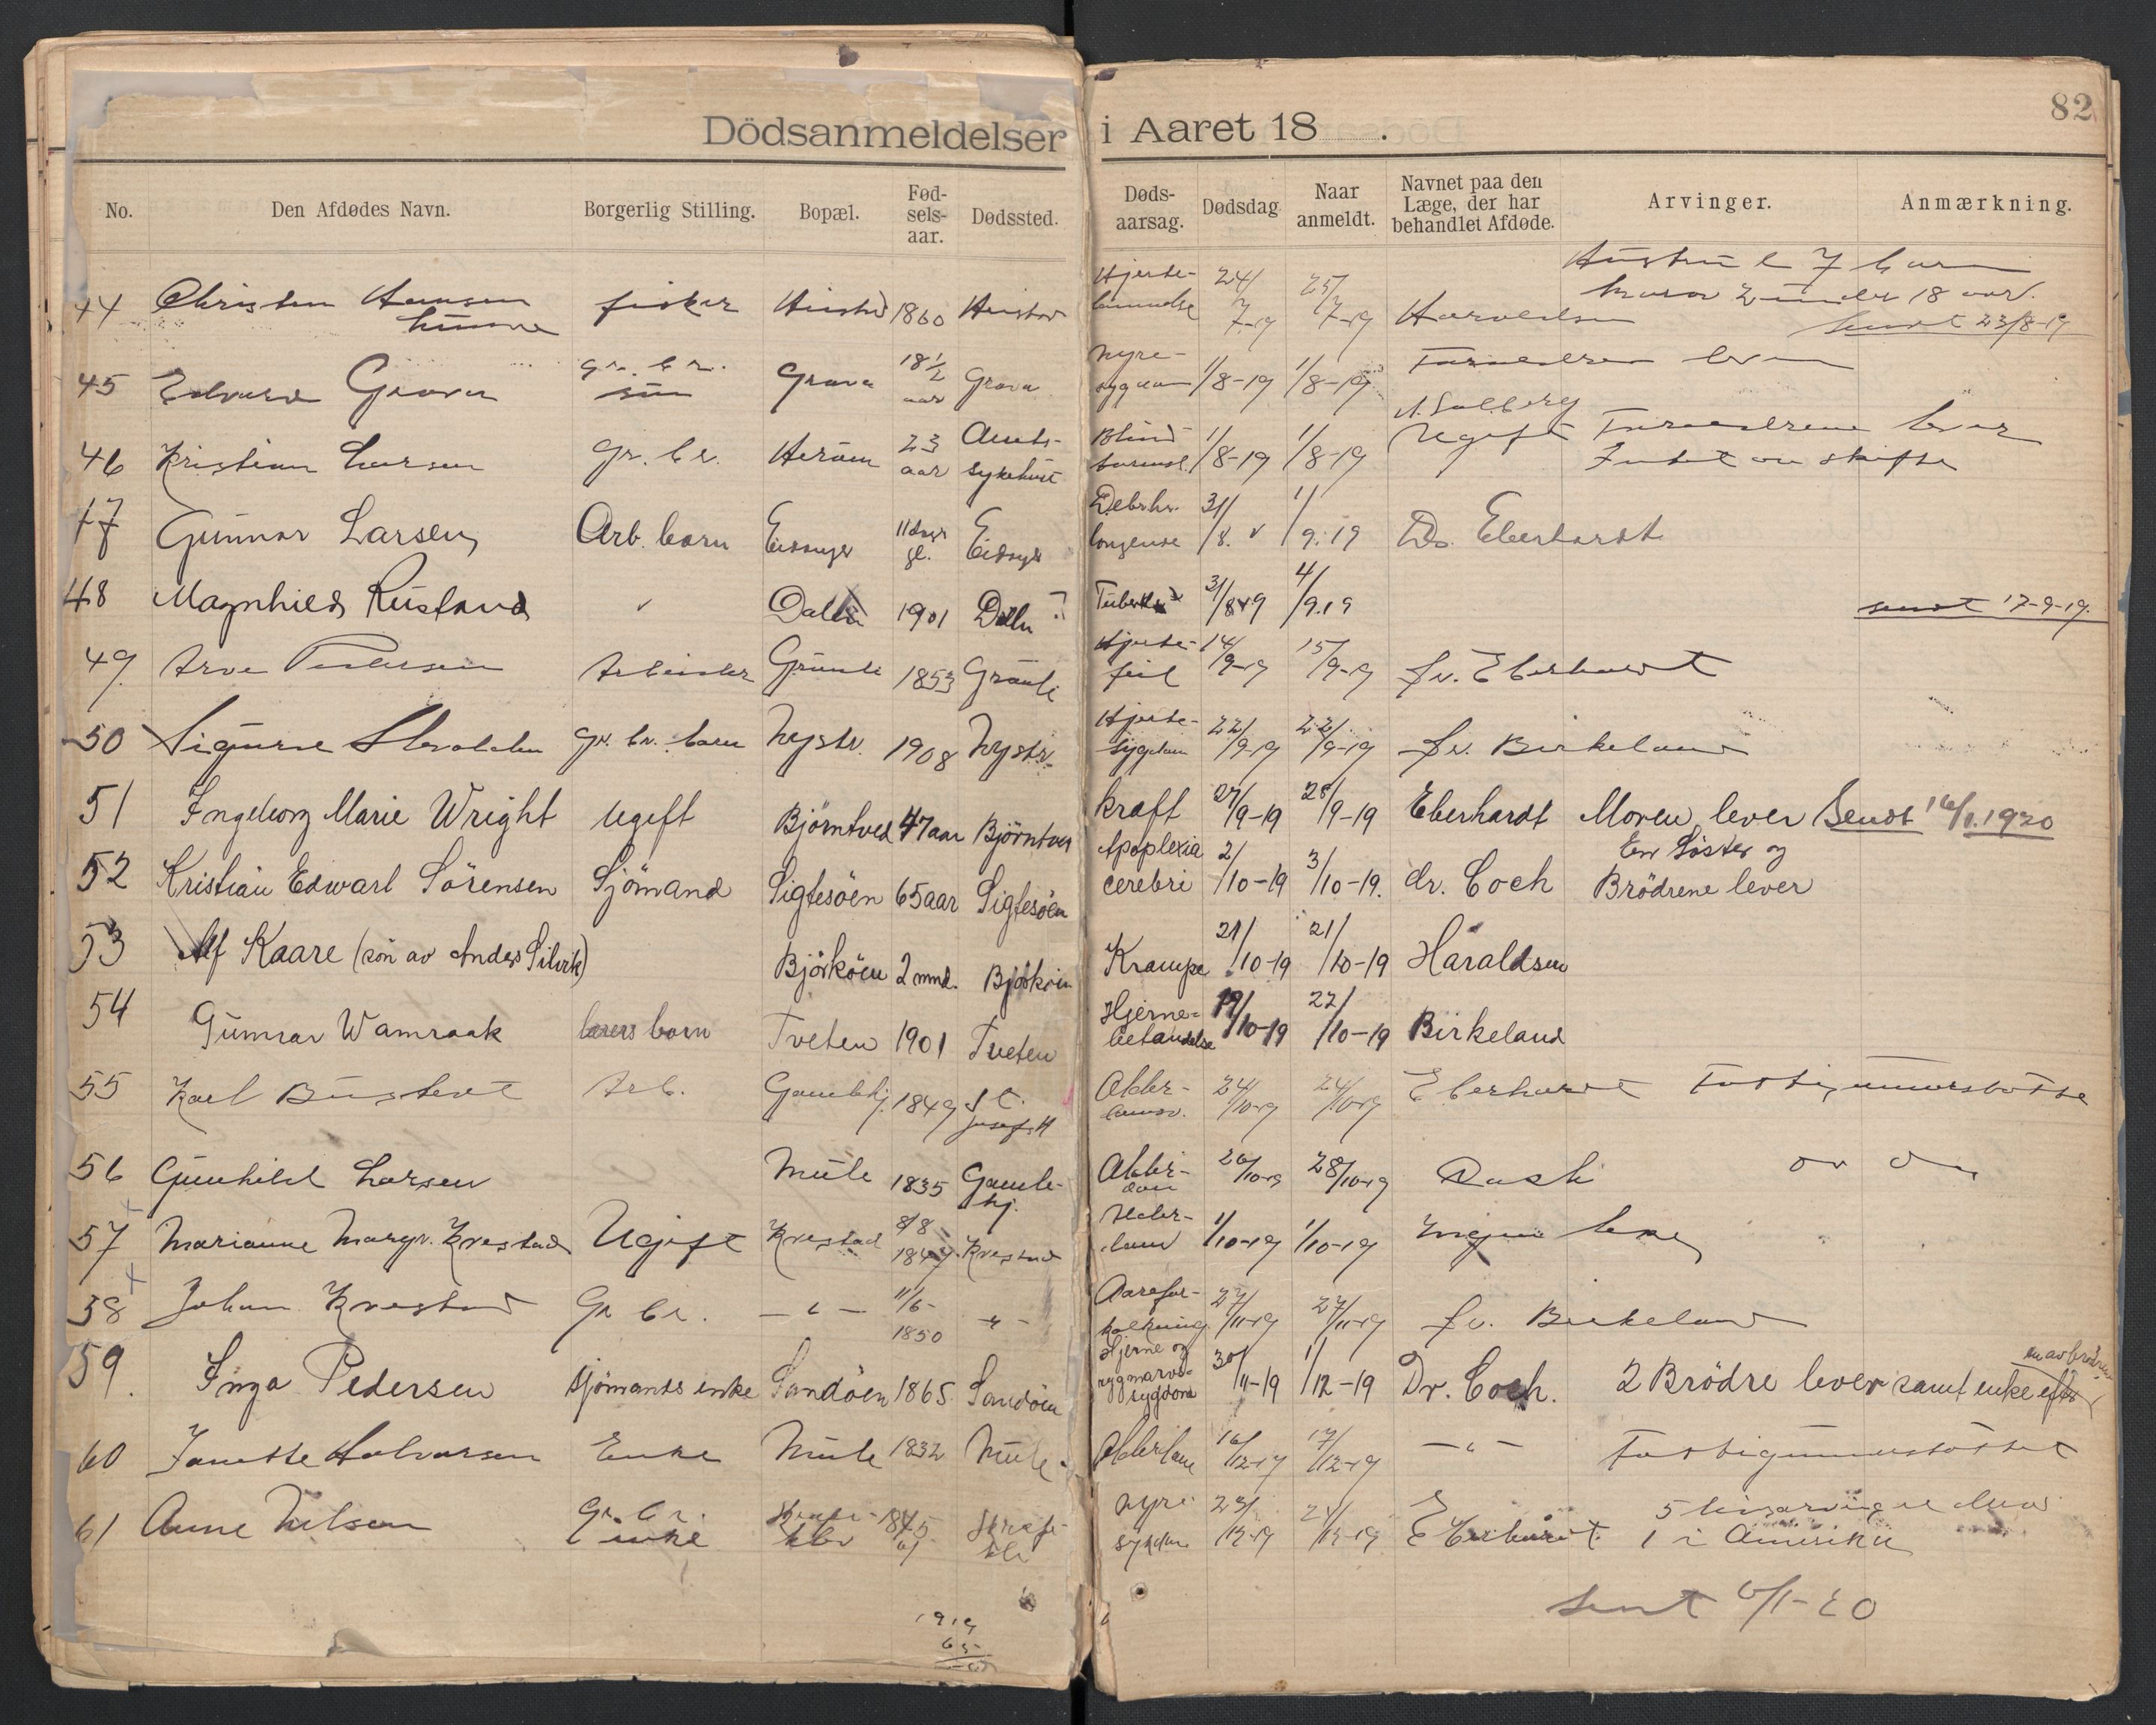 Dödsanmeldelser i Aaret 18 .
82
No. Den Afdødes Navn. Borgerlig Stilling. Bopæl. Fød-sels-aar. Dødssted. Døds-aarsag. Dødsdag Naar anmeldt. Navnet paa den Læge, der har behandlet Afdøde. Arvinger. Anmærkning.
44 Christen Hansen fisker 1860 Hjerte- 24/7-19 25/7-19 Haraldsen 7 barn
hvorav 2 under 18 aar.
sendt 23/8-19
45 Edvard Grava gr. br. sön Grava 18 1/2 aar Grava Nyre-sygdom 1/8-19 1/8-19 Foreldren lever
46 Kristian Larsen Gr. br. Heröen 23 aar Amts-sykehuset Blind-tarmsb. 1/8-19 1/8-19 N. Solberg
Ugift Foreldrene lever
Intet av skifte
47 Gunnar Larsen Arb. barn Eidanger 11 dage gl. Eidanger 31/8 1/9.19 Dr. Eberhardt
48 Magnhild Rustand Dalen 1901 Dalen Tuberk. 31/8 19 4/9.19 sendt 17-9-19.
49 Arve Pedersen Arbeider 1853 Hjerte-feil 14/9-19 15/9-19 fr. Eberhardt
50 Sigurd Gr. br. barn Nystr. 1908 Nystr. Hjerte-sygdom 22/9-19 22/9-19 fr. Birkeland
51 Ingeborg Marie Wright Ugift Björntved 47 aar Björntved kræft 27/9-19 28/9-19 Eberhardt Moren lever Sendt 16/1.1920
52 Kristian Edwart Sörensen Sjömand Sigtesöen 65 aar Sigtesöen Apoplexia cerebri 2/10-19 3/10-19. dr. Coch En Söster og
Brödrene lever
53 Alf Kaare (sön av Anders Silvik) Björköen 2 mnd. Björköen Krampe 21/10-19 21/10-19 Haraldsen
54 Gunnar Wamraak lærers barn Tveten 1901 Tveten Hjerne-betændelse 19/10-19 22/10-19 Birkeland
55 Karl Arb. Gamlehj. 1849 St. Josefs H Alder-domsv. 24/10-19 24/10-19 Eberhardt Fattigunderstötte
56 Gunhild Larsen Mule 1835 Gamle-hj. Alder-dom 26/10-19 28/10-19 Rasch
57 Marianne Margr. Krestad Ugift Krestad 8/8-1847 Krestad Alder-dom 1/10-19 1/10-19 Ingen lege
58 Johan Krestad Gr br. - " - 11/6-1850 - " - Aarefor-kalkning 27/11-19 27/11-19 fr. Birkeland
59. Inga Pedersen sjömands enke Sandöen 1865 Sandöen Hjerne og rygmarvs-sygdom 30/11-19 1/12-19 Dr. Coch. 2 Brödre lever samt enke efter en av brödrene
60 Janette Halvorsen Enke Mule 1832 Mule Alderdom 16/12-19 17/12-19 - " - Fattigunderstöttet
61 Anne Nilsen Gr. br. enke 1845 Nyre sykdom 23/12-19 24/12-19 Eberhardt. 5 livsarvinger
1 i Amerika
sent 6/1-20
1919